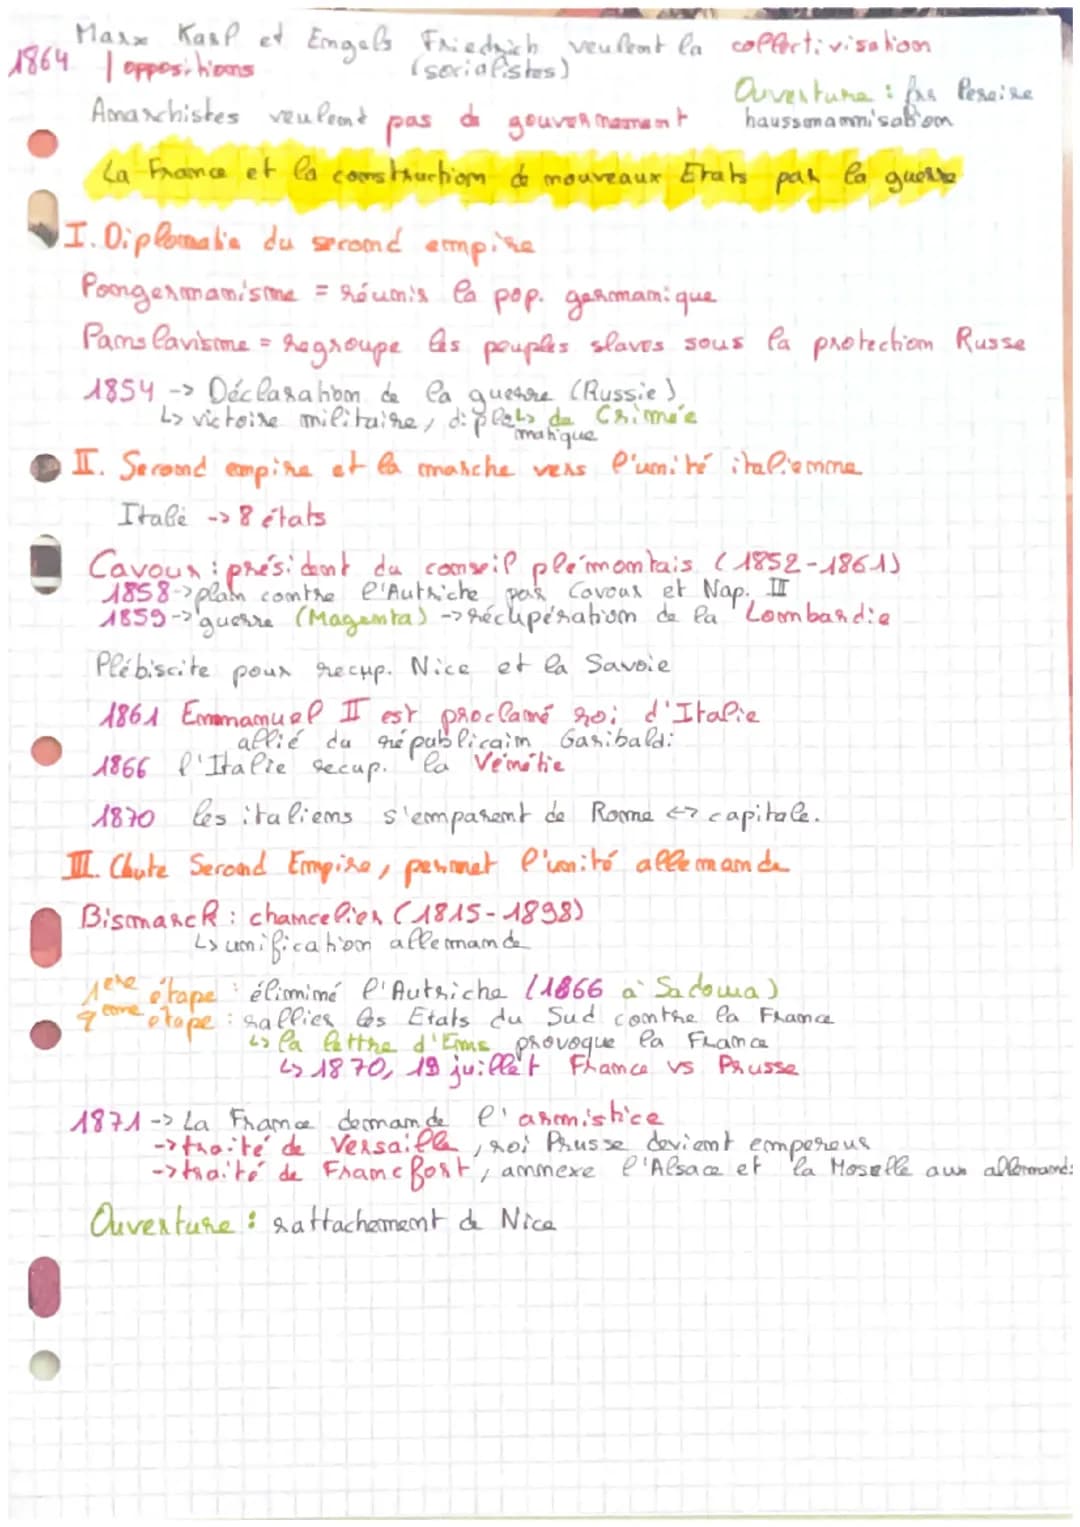 Marx Karl et Engels Friedrich veulent la collectivisation
1864 | oppositions (socialistes)
Anarchistes veulent pas de gouvernement
Ouverture : frs Pereire
haussmannisation
La France et la construction de nouveaux Etats par la guerre
I. Diplomatie du second empire
Pangermanisme = réunis la pop. germanique
Panslavisme = regroupe les peuples slaves sous la protection Russe
1854 -> Déclaration de la guerre (Russie)
↳ victoire militaire, diplomatique
↳ de Crimée
II. Second empire et la marche vers l'unité italienne
Italie -> 8 états
Cavour : président du conseil piémontais (1852-1861)
1858 -> plan contre l'Autriche par Cavour et Nap. III
1859 -> guerre (Magenta) -> récupération de la Lombardie
Plébiscite pour recup. Nice et la Savoie
1861 Emmanuel II est proclamé roi d'Italie
allié du républicain Garibaldi
1866 l'Italie recup. la Vénétie
1870 les italiens s'emparent de Rome <-> capitale.
III. Chute Second Empire, permet l'unité allemande
Bismarck : chancelier (1815-1898)
↳ unification allemande
1ere étape : éliminé l'Autriche (1866 à Sadowa)
2eme étape : rallier les Etats du Sud contre la France
↳ la lettre d'Ems provoque la France
↳ 1870, 19 juillet France vs Prusse
1871 -> La France demande l'armistice
-> traité de Versaille, roi Prusse devient empereur
-> traité de Francfort, annexe l'Alsace et la Moselle aux allemands
Ouverture : rattachement de Nice